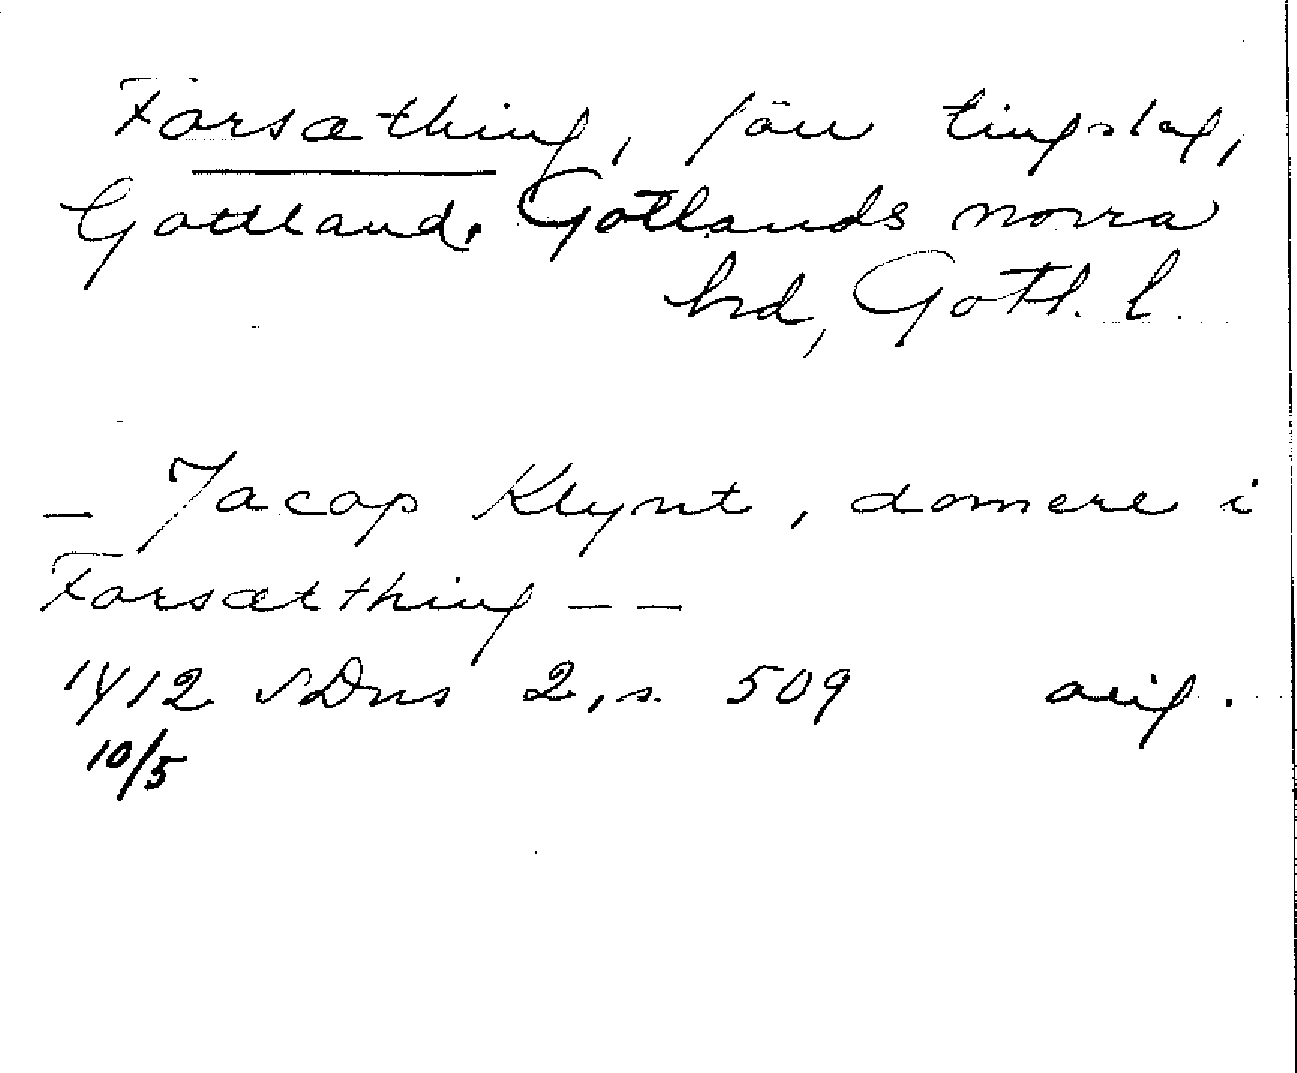 Forsæthing, förr tingslag,
Gottland. Gotlands norra
hd, Gotl. l.
– Jacop Klynt, domere i
Forsætthing – –
1412 SDns 2, s. 509 orig.
10/5